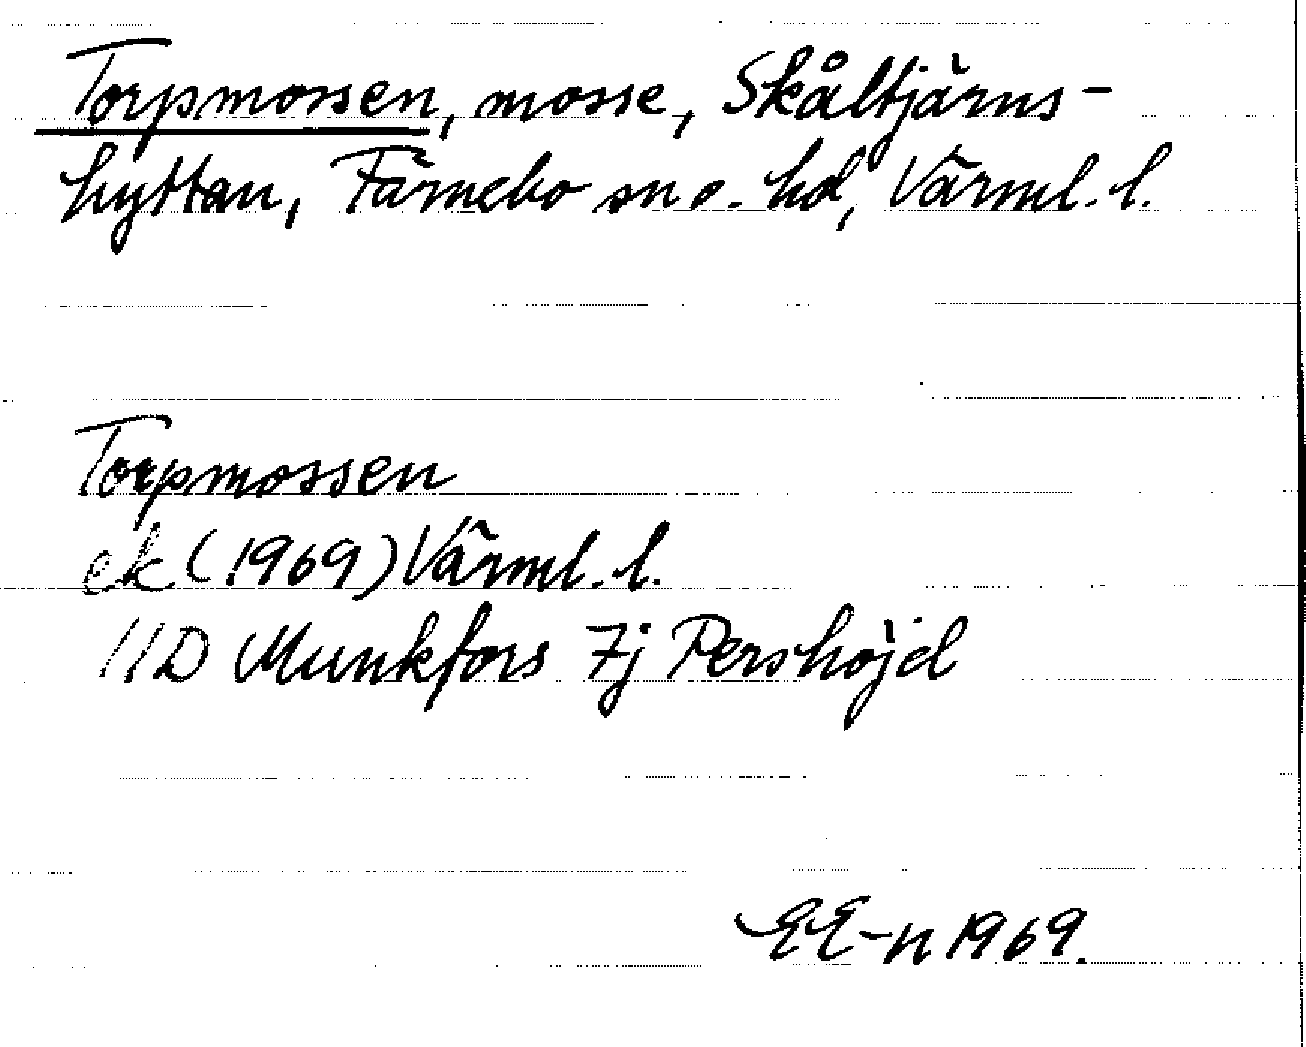 Torpmossen, mosse, Skåltjärns-
hyttan, Färnebo sn o. hd, Värml. l.
Torpmossen
ek (1969) Värml. l.
11D Munkfors 7j Pershöjd
EE-n 1969.